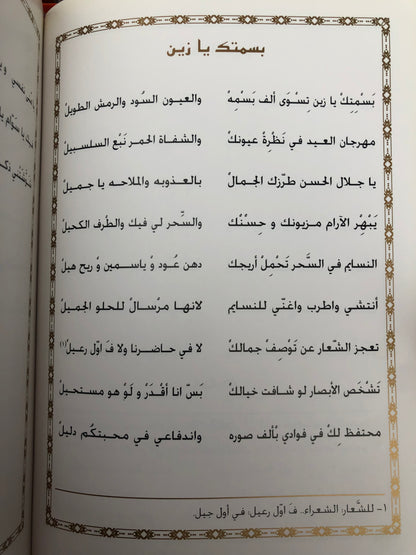 بسمتك يا زين
بَسْمِتِكْ يا زين تِسْوَى ألف بَسْمِهْ والعيون السُود والرمش الطويلْ
مهرجان العيد في نَظْرِةْ عيونكْ والشفاة الحمر نَبْع السلسبيلْ
يا جلال الحسن طرّزك الجمالْ بالعذوبه والملاحه يا جميلْ
يَبْهِرْ الآرام مزيونك و حِسْنْكْ والسِّحر لي فيك والطَّرف الكحيلْ
النسايم في السَّحر تَحْمِلْ أريجكْ دهن عُود وْ ياسمين وْ ريح هيلْ
أنتشي واطرب واغنّي للنسايم لانها مرْسالْ للحلو الجميلْ
تعجز الشّعار عن تَوْصِفْ جمالكْ لا في حاضرنا ولا فَ اوّل رعيلْ(١)
تَشْخَص الأبصار لو شافت خيالكْ بَسّ انا أقْدَرْ وْ لَوْ هو مستحيلْ
محتفظ لِكْ في فوادي بألف صوره واندفاعي في محبتكُم دليلْ
١- للشَّعار: الشعراء.. فَ اوّل رعيل: في أول جيل.